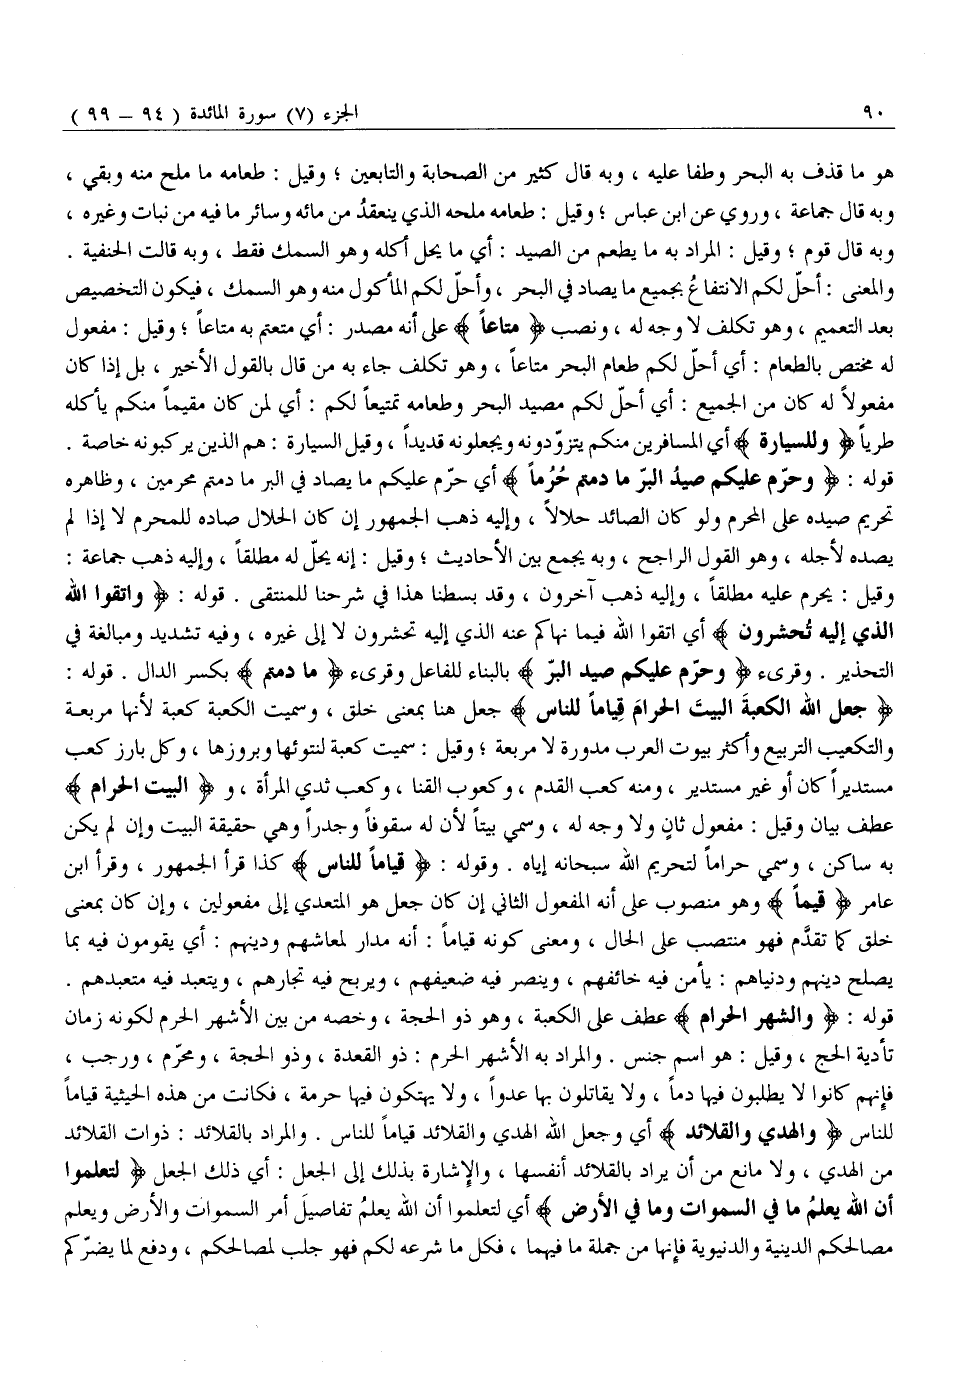 ٩٠
الجزء (٧) سورة المائدة ( ٩٤ – ٩٩ )
هو ما قذف به البحر وطفا عليه ، وبه قال كثير من الصحابة والتابعين ؛ وقيل : طعامه ما ملح منه وبقي ،
وبه قال جماعة ، وروي عن ابن عباس ؛ وقيل : طعامه ملحه الذي ينعقدُ من مائه وسائر ما فيه من نبات وغيره ،
وبه قال قوم ؛ وقيل : المراد به ما يطعم من الصيد : أي ما يحل أكله وهو السمك فقط ، وبه قالت الحنفية .
والمعنى : أحلّ لكم الانتفاعُ بجميع ما يصاد في البحر ، وأحلّ لكم المأكول منه وهو السمك ، فيكون التخصيص
بعد التعميم ، وهو تكلف لا وجه له ، ونصب ﴿ متاعاً ﴾ على أنه مصدر : أي متعتم به متاعاً ؛ وقيل : مفعول
له مختص بالطعام : أي أحلّ لكم طعام البحر متاعاً ، وهو تكلف جاء به من قال بالقول الأخير ، بل إذا كان
مفعولاً له كان من الجميع : أي أحلّ لكم مصيد البحر وطعامه تمتيعاً لكم : أي لمن كان مقيماً منكم يأكله
طرياً ﴿ وللسيارة ﴾ أي المسافرين منكم يتزوّدونه ويجعلونه قديداً ، وقيل السيارة : هم الذين يركبونه خاصة .
قوله : ﴿ وحرّم عليكم صيدُ البرّ ما دمتم حُرُماً ﴾ أي حرّم عليكم ما يصاد في البر ما دمتم محرمين ، وظاهره
تحريم صيده على المحرم ولو كان الصائد حلالاً ، وإليه ذهب الجمهور إن كان الحلال صاده للمحرم لا إذا لم
يصده لأجله ، وهو القول الراجح ، وبه يجمع بين الأحاديث ؛ وقيل : إنه يحلّ له مطلقاً ، وإليه ذهب جماعة :
وقيل : يحرم عليه مطلقاً ، وإليه ذهب آخرون ، وقد بسطنا هذا في شرحنا للمنتقى . قوله : ﴿ واتقوا الله
الذي إليه تُحشرون ﴾ أي اتقوا الله فيما نهاكم عنه الذي إليه تحشرون لا إلى غيره ، وفيه تشديد ومبالغة في
التحذير . وقرىء ﴿ وحرّم عليكم صيد البرّ ﴾ بالبناء للفاعل وقرىء ﴿ ما دمتم ﴾ بكسر الدال . قوله :
﴿ جعل الله الكعبةَ البيتَ الحرامَ قِياماً للناس ﴾ جعل هنا بمعنى خلق ، وسميت الكعبة كعبة لأنها مربعة
والتكعيب التربيع وأكثر بيوت العرب مدورة لا مربعة ؛ وقيل : سميت كعبة لنتوئها وبروزها ، وكل بارز كعب
مستديراً كان أو غير مستدير ، ومنه كعب القدم ، وكعوب القنا ، وكعب ثدي المرأة ، و ﴿ البيت الحرام ﴾
عطف بيان وقيل : مفعول ثانٍ ولا وجه له ، وسمي بيتاً لأن له سقوفاً وجدراً وهي حقيقة البيت وإن لم يكن
به ساكن ، وسمي حراماً لتحريم الله سبحانه إياه . وقوله : ﴿ قياماً للناس ﴾ كذا قرأ الجمهور ، وقرأ ابن
عامر ﴿ قيماً ﴾ وهو منصوب على أنه المفعول الثاني إن كان جعل هو المتعدي إلى مفعولين ، وإن كان بمعنى
خلق كما تقدَّم فهو منتصب على الحال ، ومعنى كونه قياماً : أنه مدار لمعاشهم ودينهم : أي يقومون فيه بما
يصلح دينهم ودنياهم : يأمن فيه خائفهم ، وينصر فيه ضعيفهم ، ويربح فيه تجارهم ، ويتعبد فيه متعبدهم .
قوله : ﴿ والشهر الحرام ﴾ عطف على الكعبة ، وهو ذو الحجة ، وخصه من بين الأشهر الحرم لكونه زمان
تأدية الحج ، وقيل : هو اسم جنس . والمراد به الأشهر الحرم : ذو القعدة ، وذو الحجة ، ومحرّم ، ورجب ،
فإنهم كانوا لا يطلبون فيها دماً ، ولا يقاتلون بها عدواً ، ولا يهتكون فيها حرمة ، فكانت من هذه الحيثية قياماً
للناس ﴿ والهدي والقلائد ﴾ أي وجعل الله الهدي والقلائد قياماً للناس . والمراد بالقلائد : ذوات القلائد
من الهدي ، ولا مانع من أن يراد بالقلائد أنفسها ، والإشارة بذلك إلى الجعل : أي ذلك الجعل ﴿ لتعلموا
أن الله يعلمُ ما في السموات وما في الأرض ﴾ أي لتعلموا أن الله يعلمُ تفاصيلَ أمر السموات والأرض ويعلم
مصالحكم الدينية والدنيوية فإنها من جملة ما فيهما ، فكل ما شرعه لكم فهو جلب لمصالحكم ، ودفع لما يضرّكم